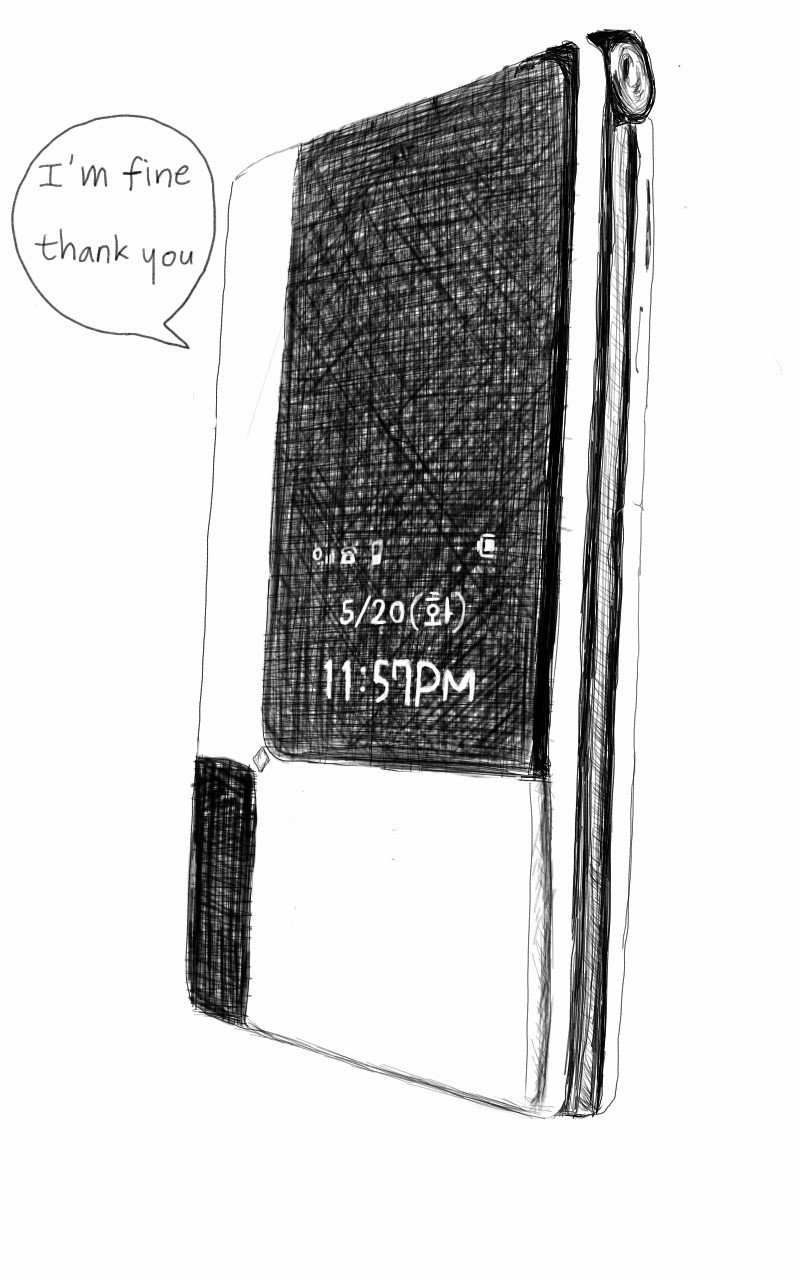 I'm fine
thank you
5/20(화)
11:57PM